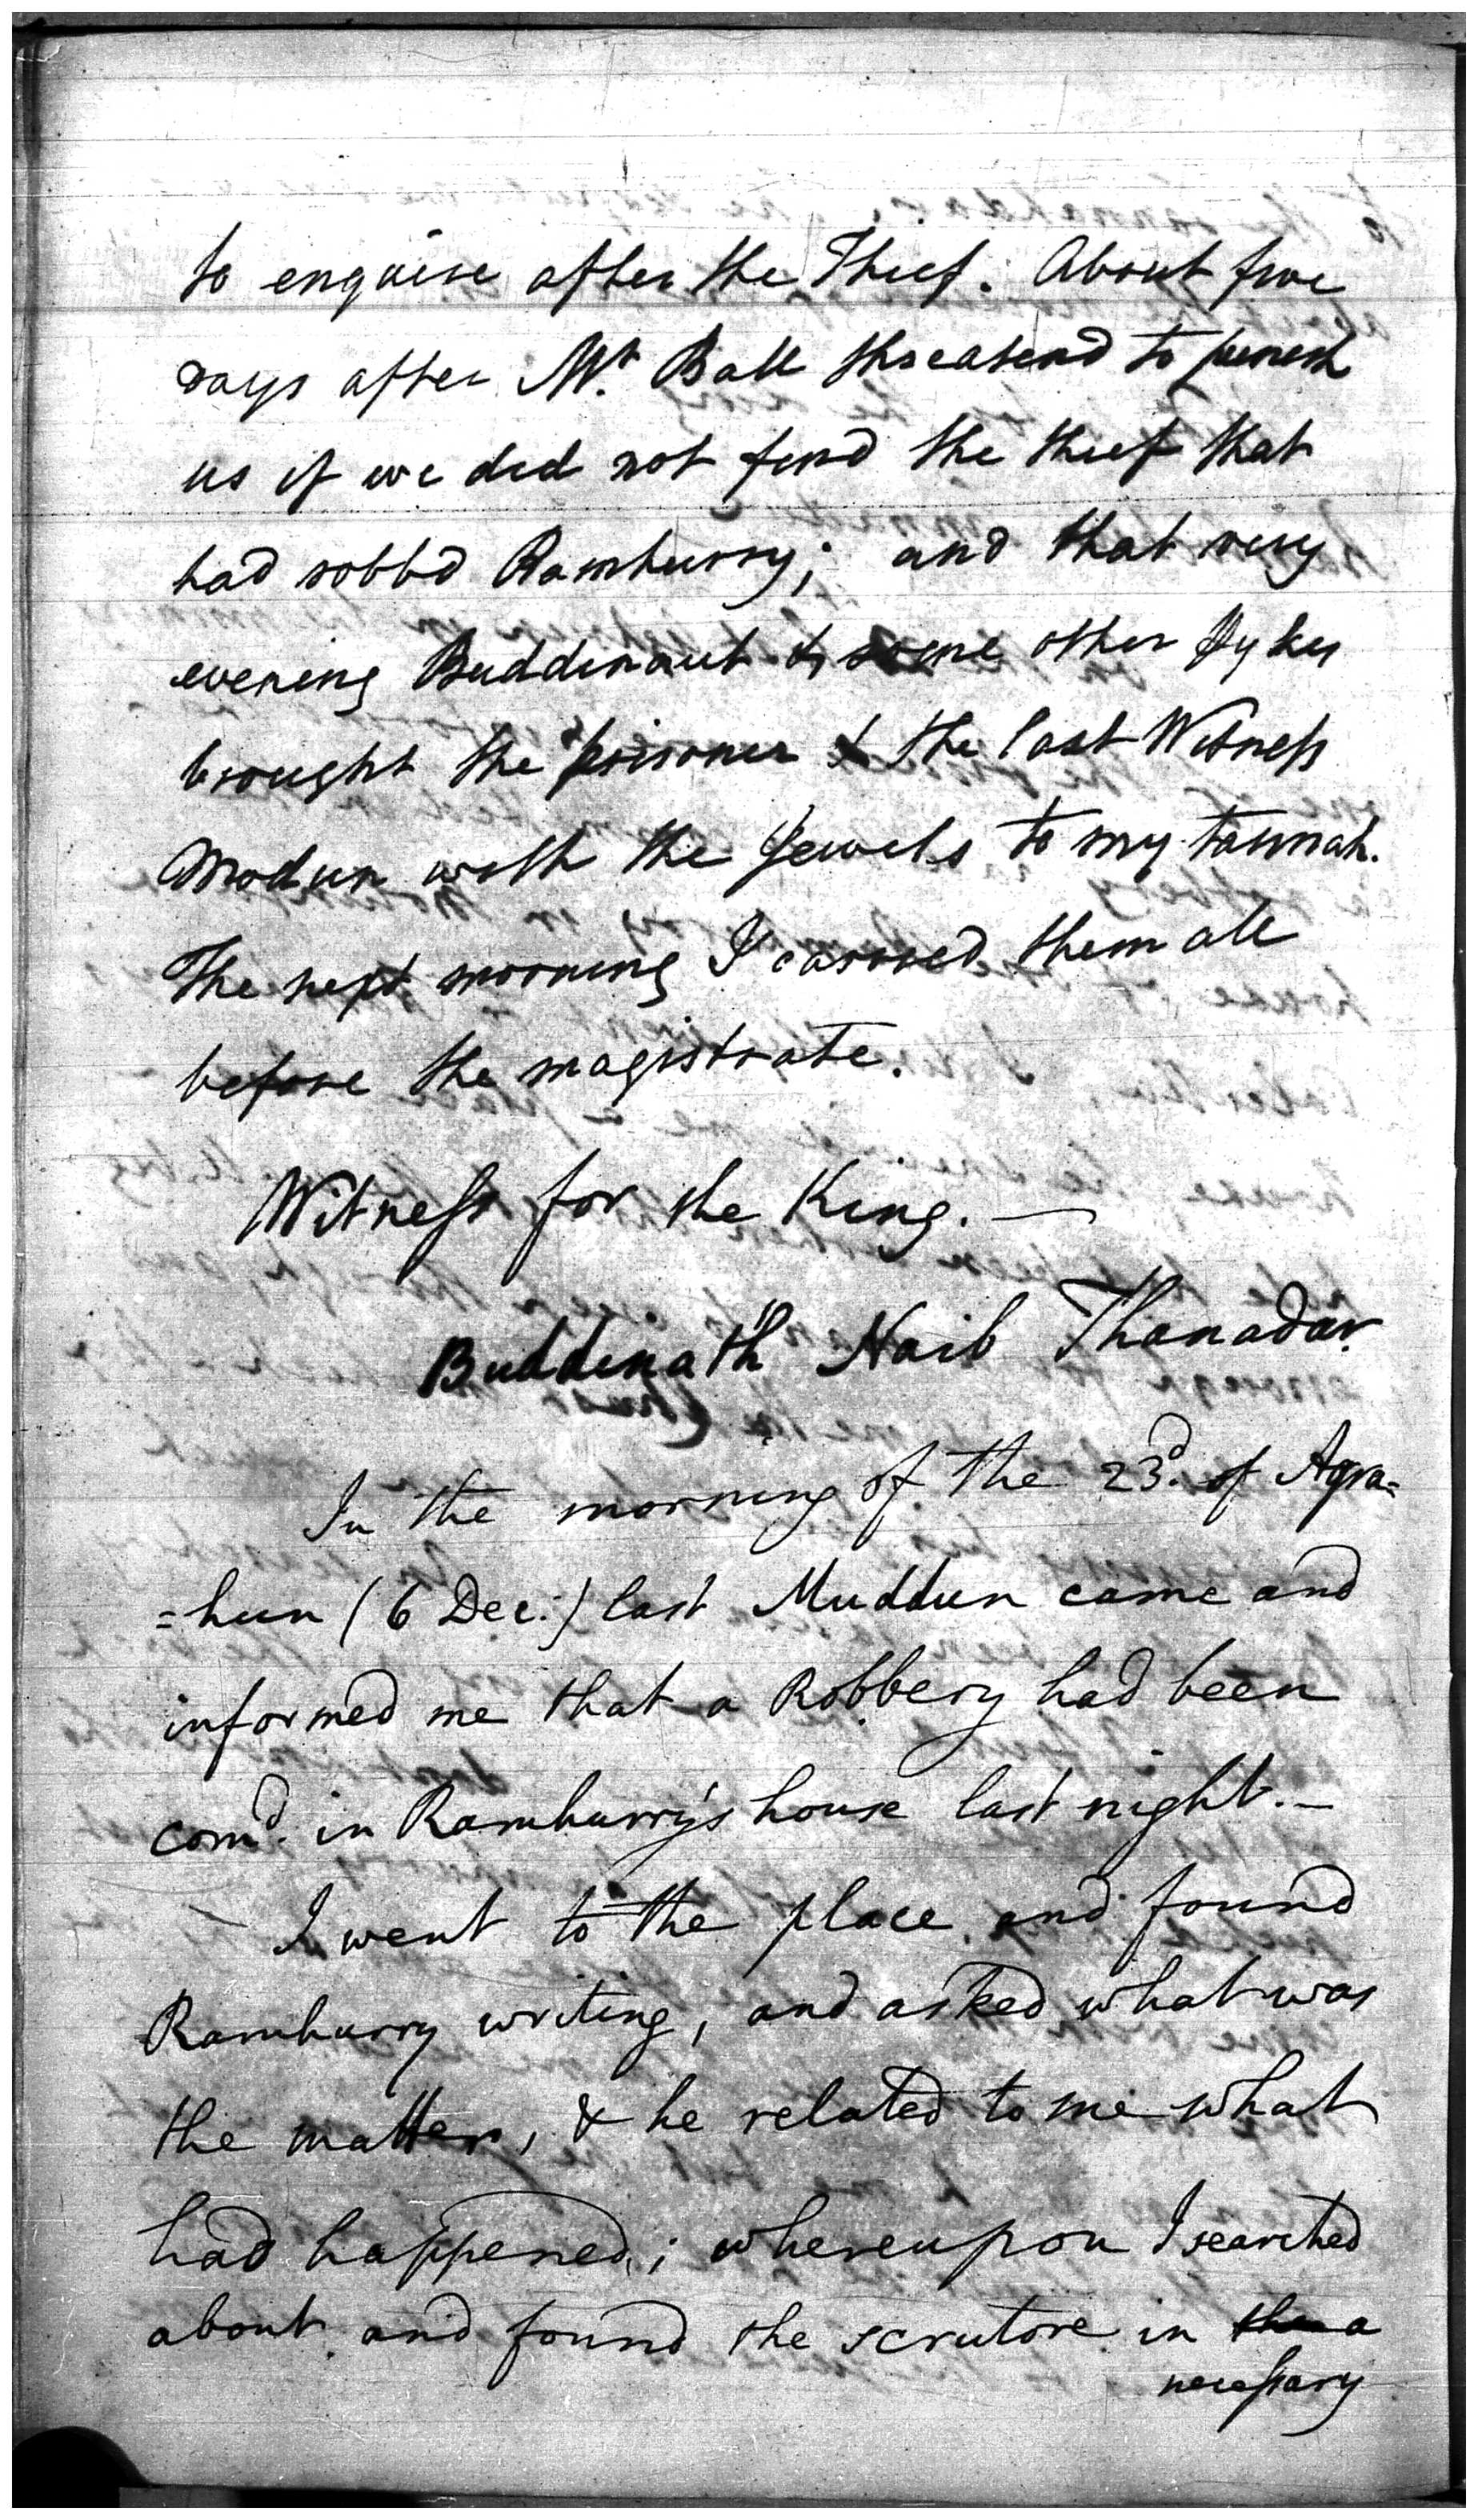 to enquire after the Thief. About five
days after Mr. Ball threatend to punish
us if we did not find the thief that
had robb'd Ramhurry; and that very
evening Buddinaut & some other Pykes
brought the prisoner & the last Witness
Modun with the Jewels to my tannah.
The next morning I carried them all
before the magistrate.
Witness for the King. —
Buddinath Naib Thanadar.
In the morning of the 23d. of Agra=
=hun (6 Dec:) last Muddun came and
informed me that a Robbery had been
comd. in Ramhurry's house last night. —
I went to the place and found
Ramhurry writing, and asked what was
the matter, & he related to me what
had happened; whereupon I searched
about and found the scrutore in a
necessary